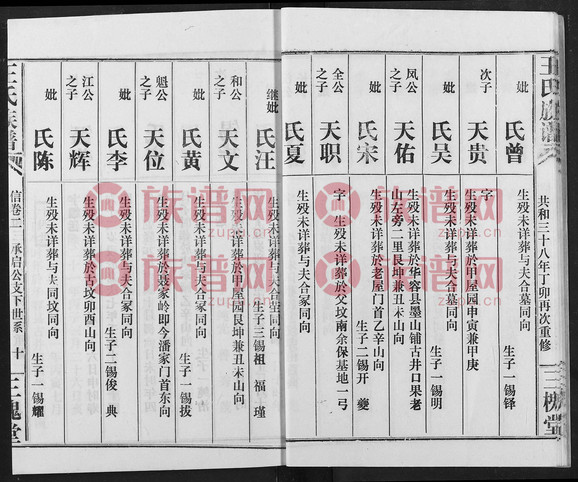 王氏族谱
共和三十八年丁卯再次重修
三槐堂
妣 氏曾 生殁未详葬与夫合冢同向 生子一锡铎
次子 天贵 字 生殁未详葬於甲屋园申寅兼甲庚
妣 氏吴 生殁未详葬与夫合墓同向 生子一锡明
凤公之子 天佑 生殁未详葬於华容县墨山铺古井口果老山左旁二里艮坤兼丑未山向
妣 氏宋 生殁未详葬与夫合墓同向 生子二锡开 夔
全公之子 天职 字 生殁未详葬於老屋门首乙辛山向
妣 氏夏 生殁未详葬於父坟南余保基地一弓
继妣 氏汪 生殁未详葬与夫合茔同向 生子三锡祖 福 瑾
和公之子 天文 生殁未详葬於甲屋园艮坤兼丑未山向
妣 氏黄 生殁未详葬与夫合冢同向 生子一锡拔
魁公之子 天位 生殁未详葬於聂家岭即今潘家门首东向
妣 氏李 生殁未详葬与夫合冢同向 生子二锡俊 典
江公之子 天辉 生殁未详葬於古坟卯酉山向
妣 氏陈 生殁未详葬与夫同坟同向 生子一锡耀
王氏族谱
信卷二 承启公支下世系 十
三槐堂
族谱网
zupu.cn